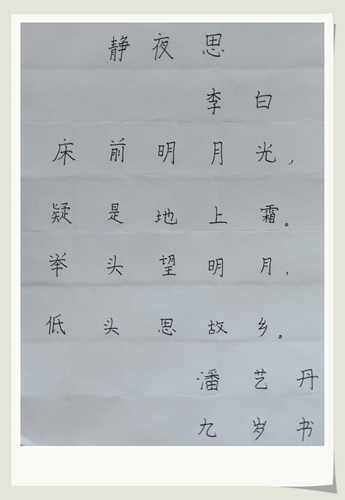 静夜思
李白
床前明月光，
疑是地上霜。
举头望明月，
低头思故乡。
潘艺丹
九岁书